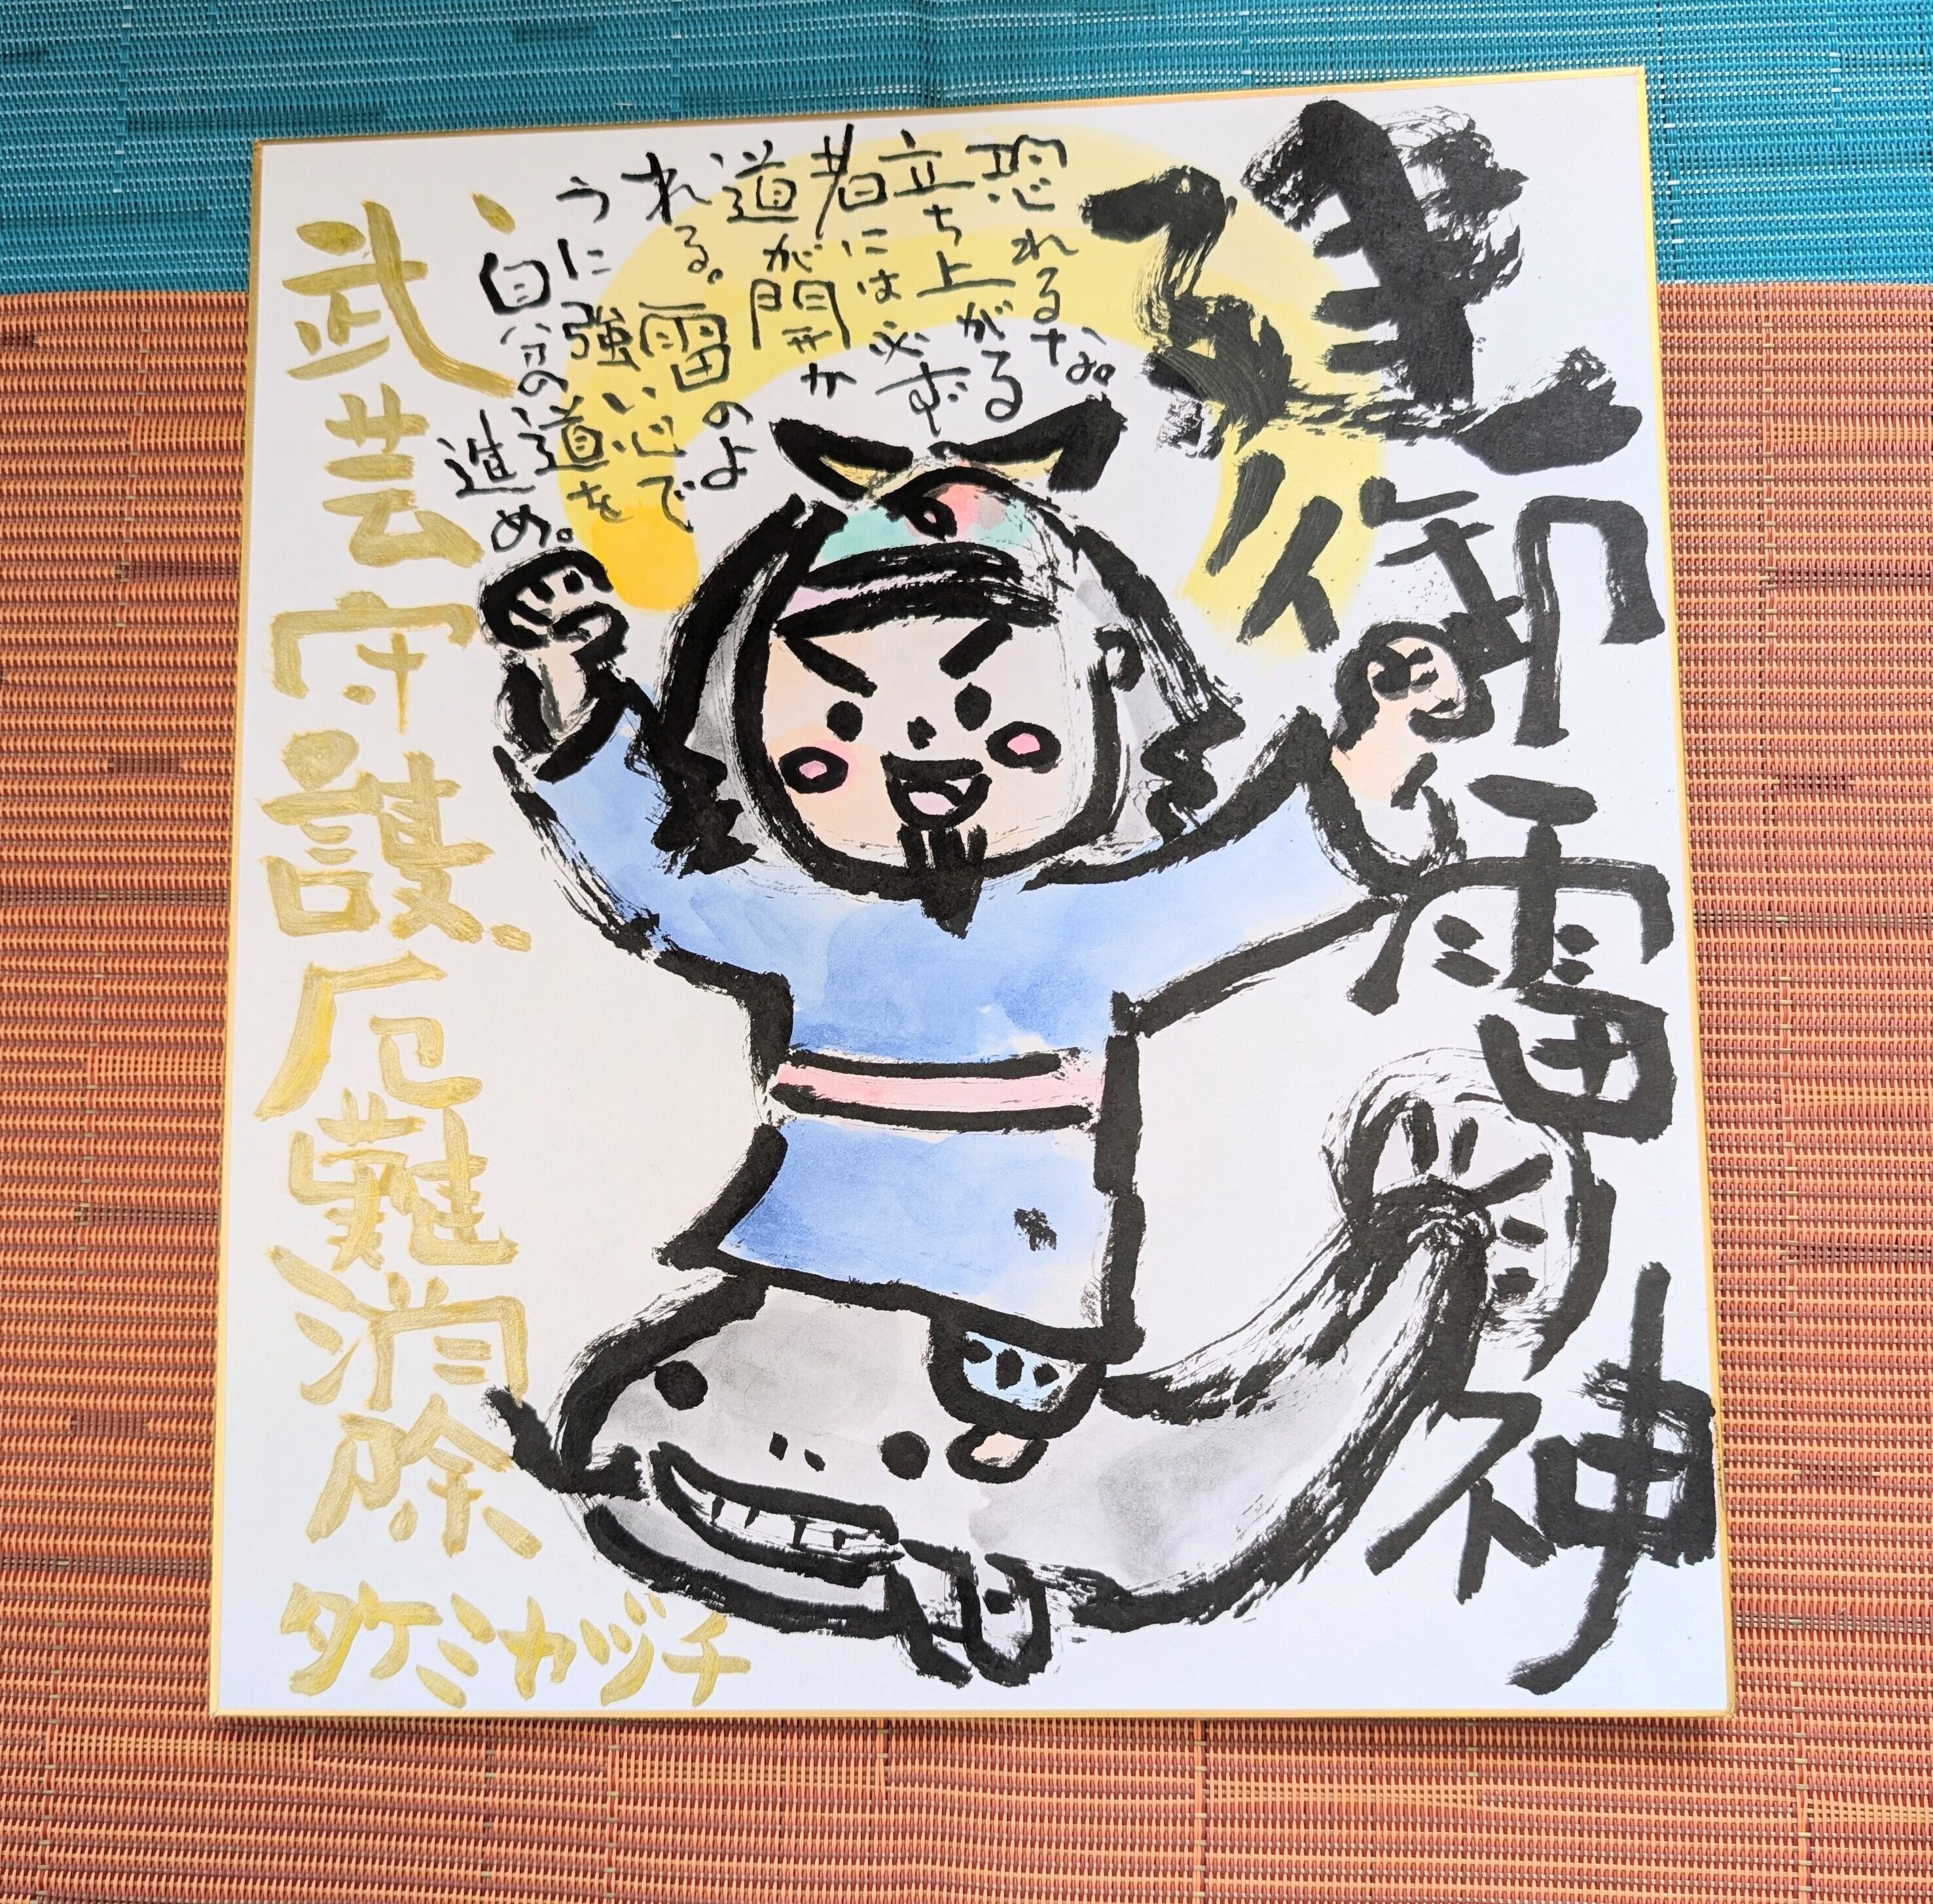 建御雷神
恐れるな。
立ち上がる
者には必ず
道が開か
れる。雷のよ
うに強い心で
自分の道を
進め。
武芸守護、厄難消除
タケミカヅチ